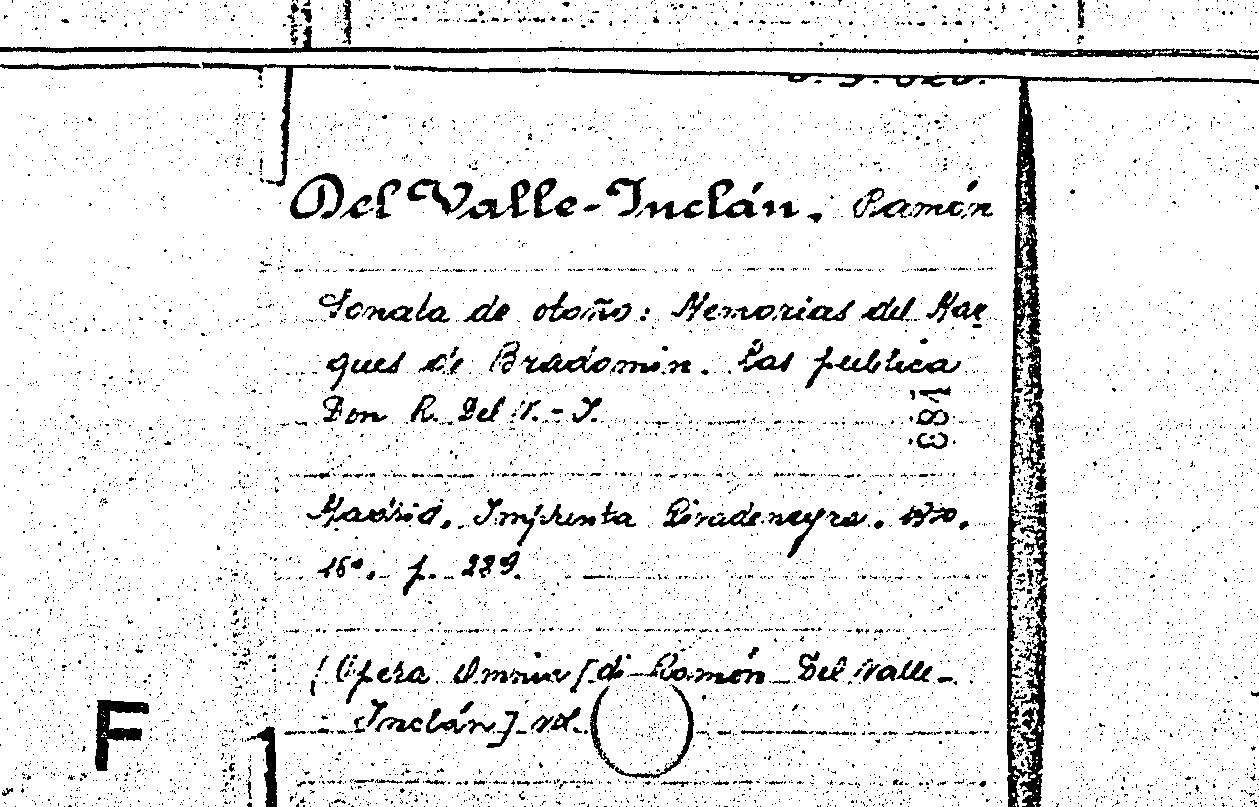 Del Valle-Inclán, Ramón
Sonata de otoño: Memorias del Mar
ques de Bradomin. Las publica
Don R. Del V. - I.
183
Madrid. Imprenta Rivadeneyra.
16°. p. 289.
(Opera Omnia [di Ramón Del Valle-
Inclán] vol.
F